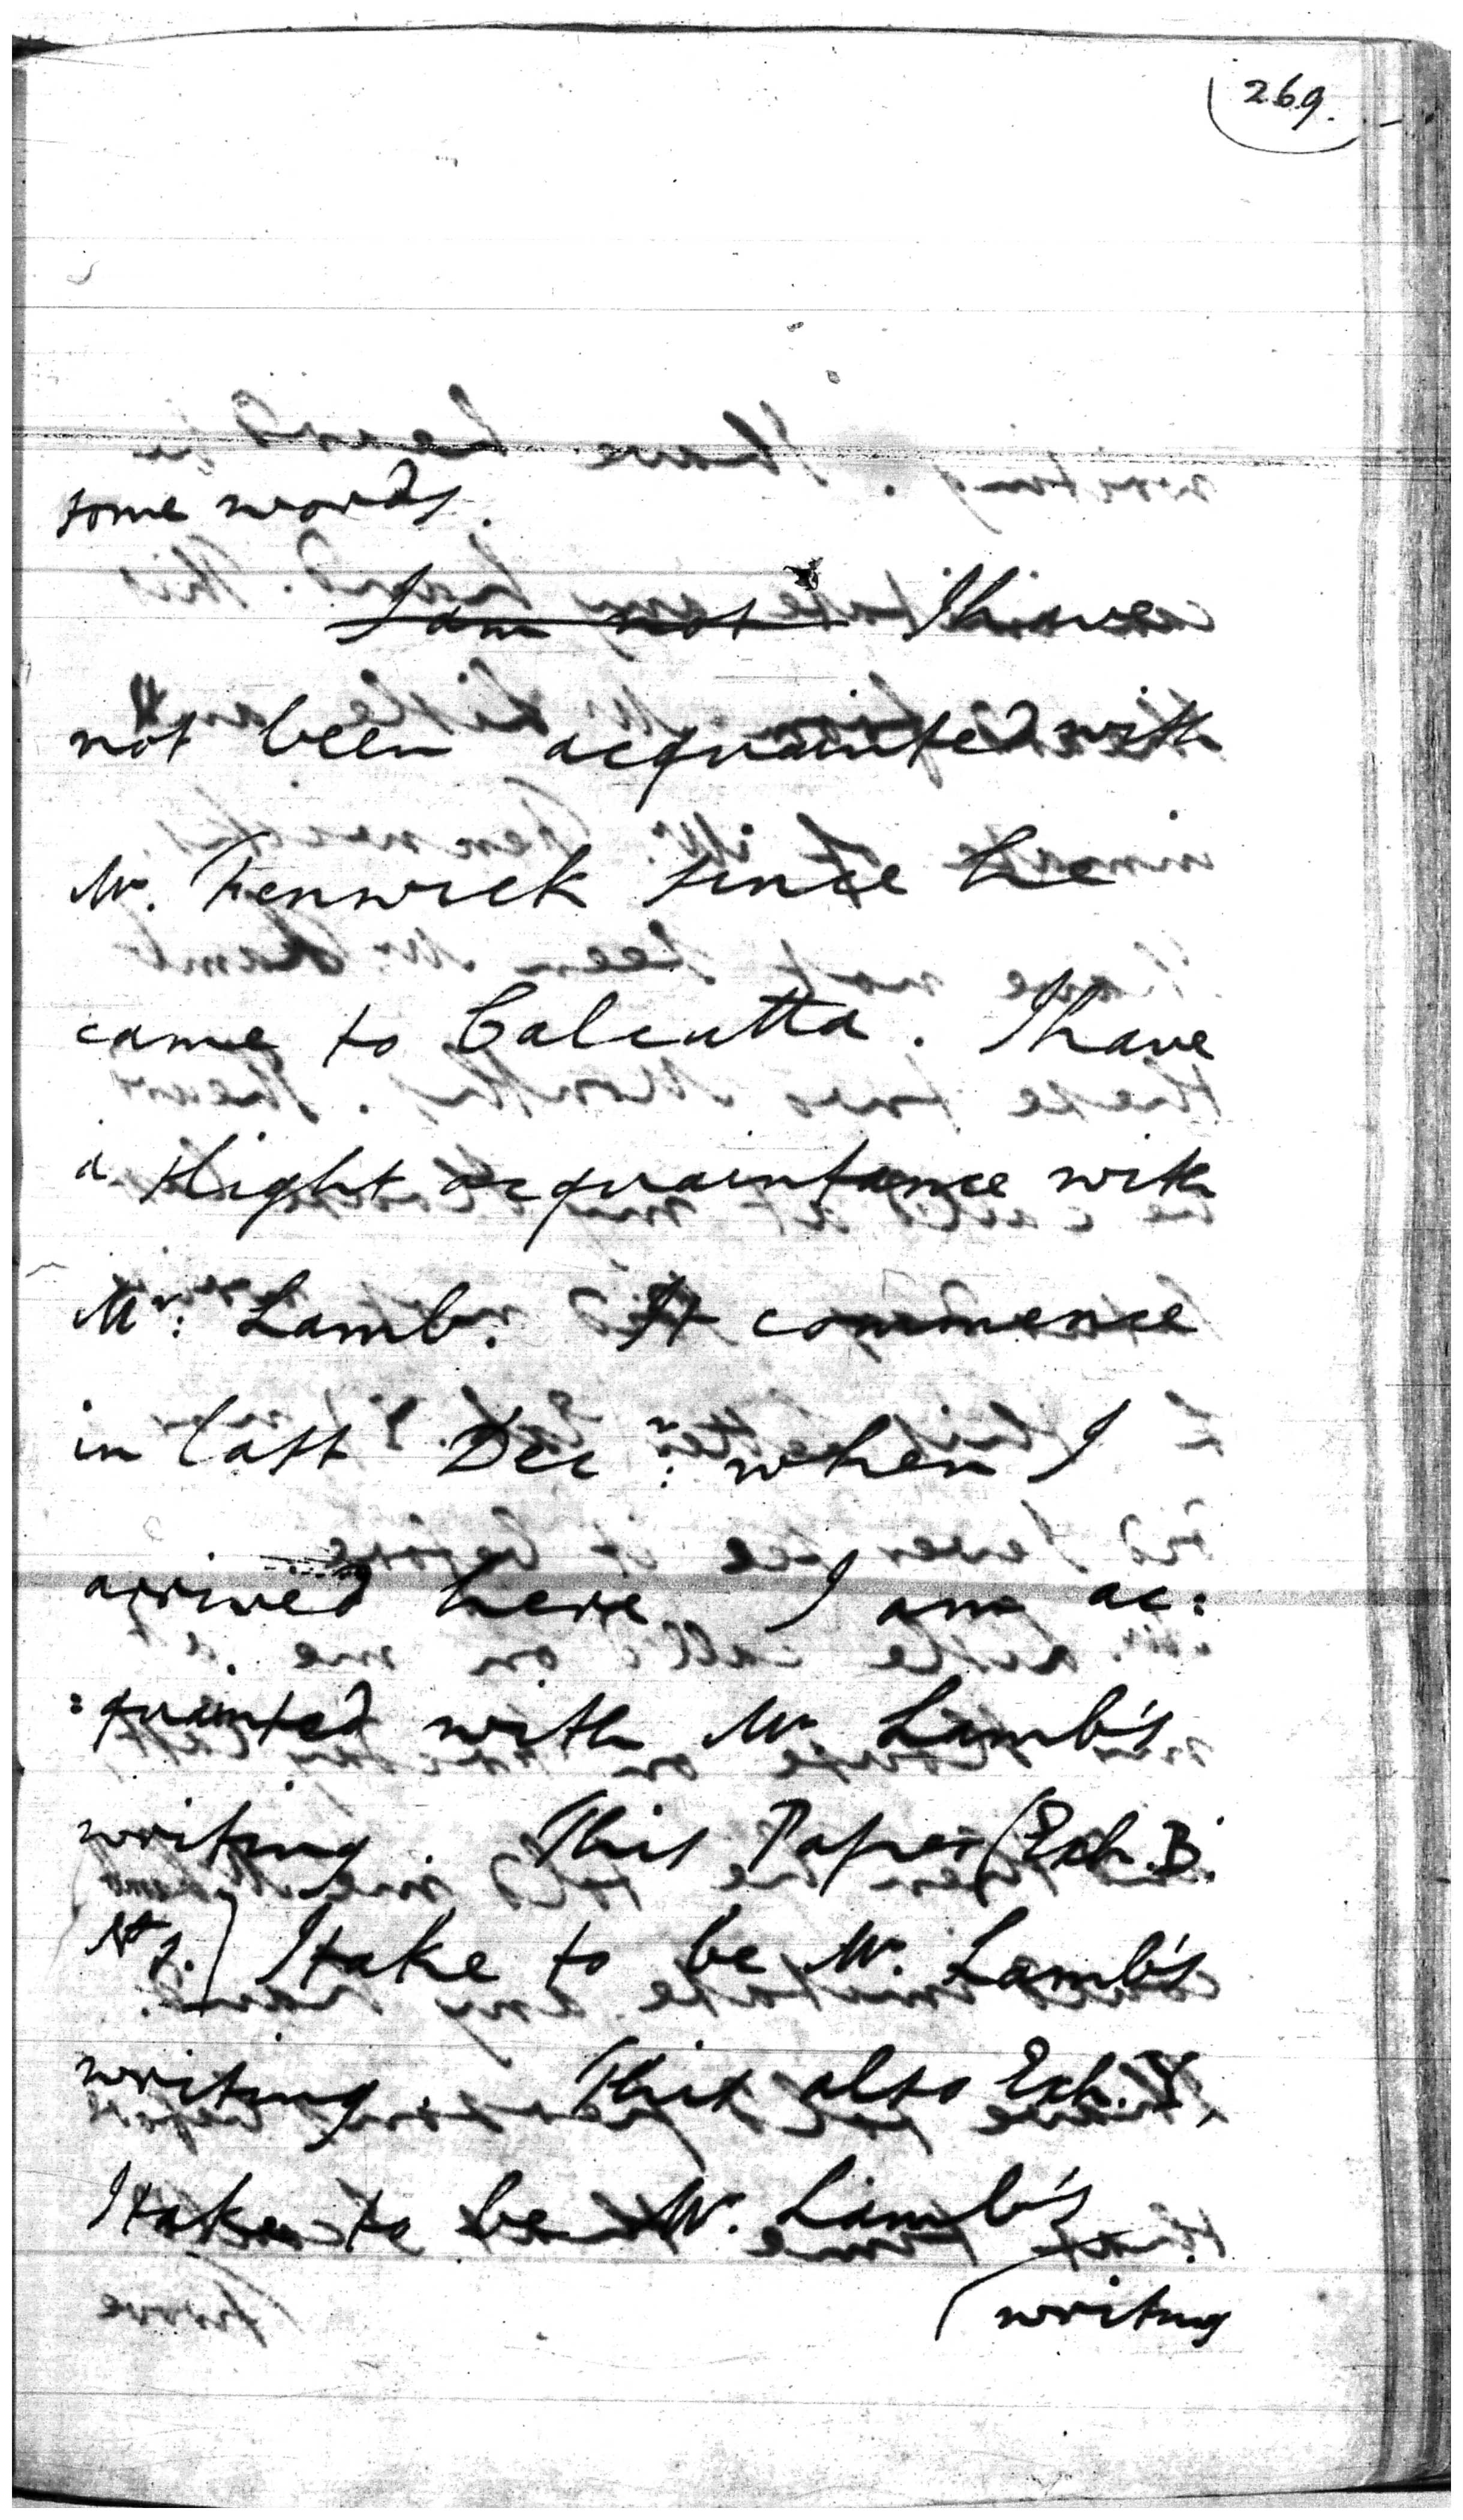 269.
some words.
I am not I have
not been acquainted with
Mr. Fenwick since he
came to Calcutta. I have
a slight acquaintance with
Mr: Lamb. It commence
in last Decr: when I
arrived here I am ac:
:quanted with Mr Lamb's
writing. This Paper (Exh. B.
I take to be Mr. Lamb's
writing. This also Exh.
I take to be Mr. Lamb's
(writing